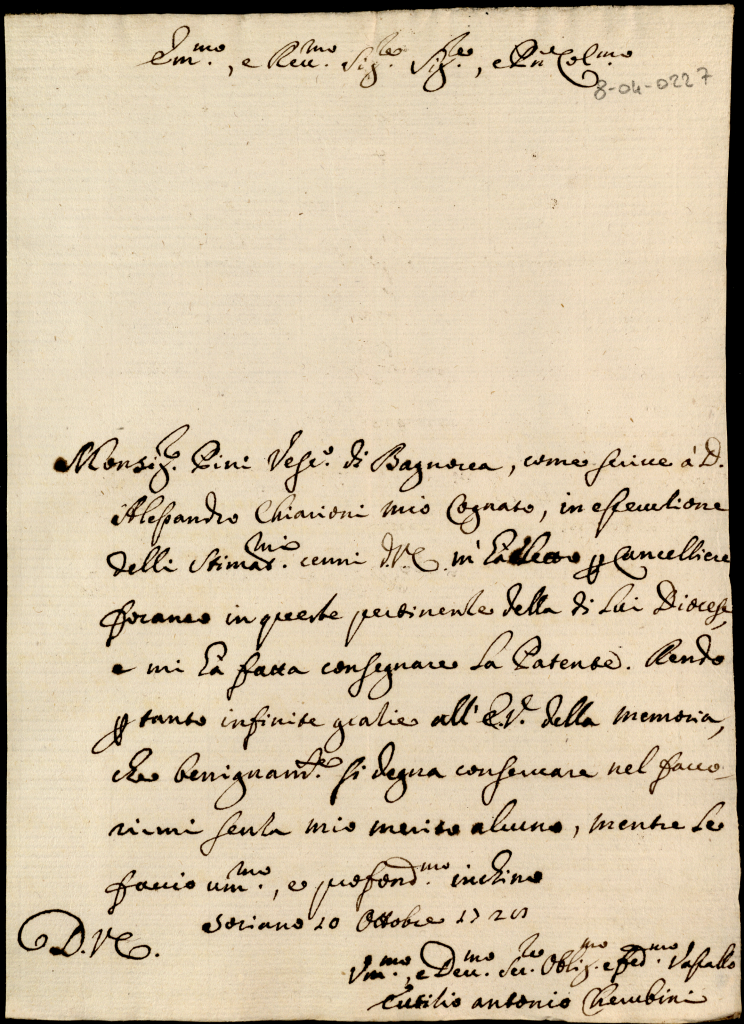 Em.mo, e Reu.mo Sig.re Sig.re, e Pñe Col.mo
8-04-0227
Monsig.r Pini Vesc.o di Bagnorea, come scriue à D.
Alessandro Chiarioni mio Cognato, in essecutione
delli Stimat.mi cenni d. V. E. m'hà eletto ꝑ Cancelliere
foraneo in queste pertinente della di Lui Diocese,
e mi hà fatta consegnare la Patente. Rendo
ꝑ tanto infinite gratie all'E.V. della memoria,
che benignam.te si degna conseruare nel fauo-
rirmi senza mio merito alcuno, mentre le
faccio um.mo, e profond.mo inchino
Soriano 10 Ottobre
D. V. E.
Vm.mo, e Deu.mo Ser.re Oblig.mo e fed.mo Vassallo
antonio Cherubini